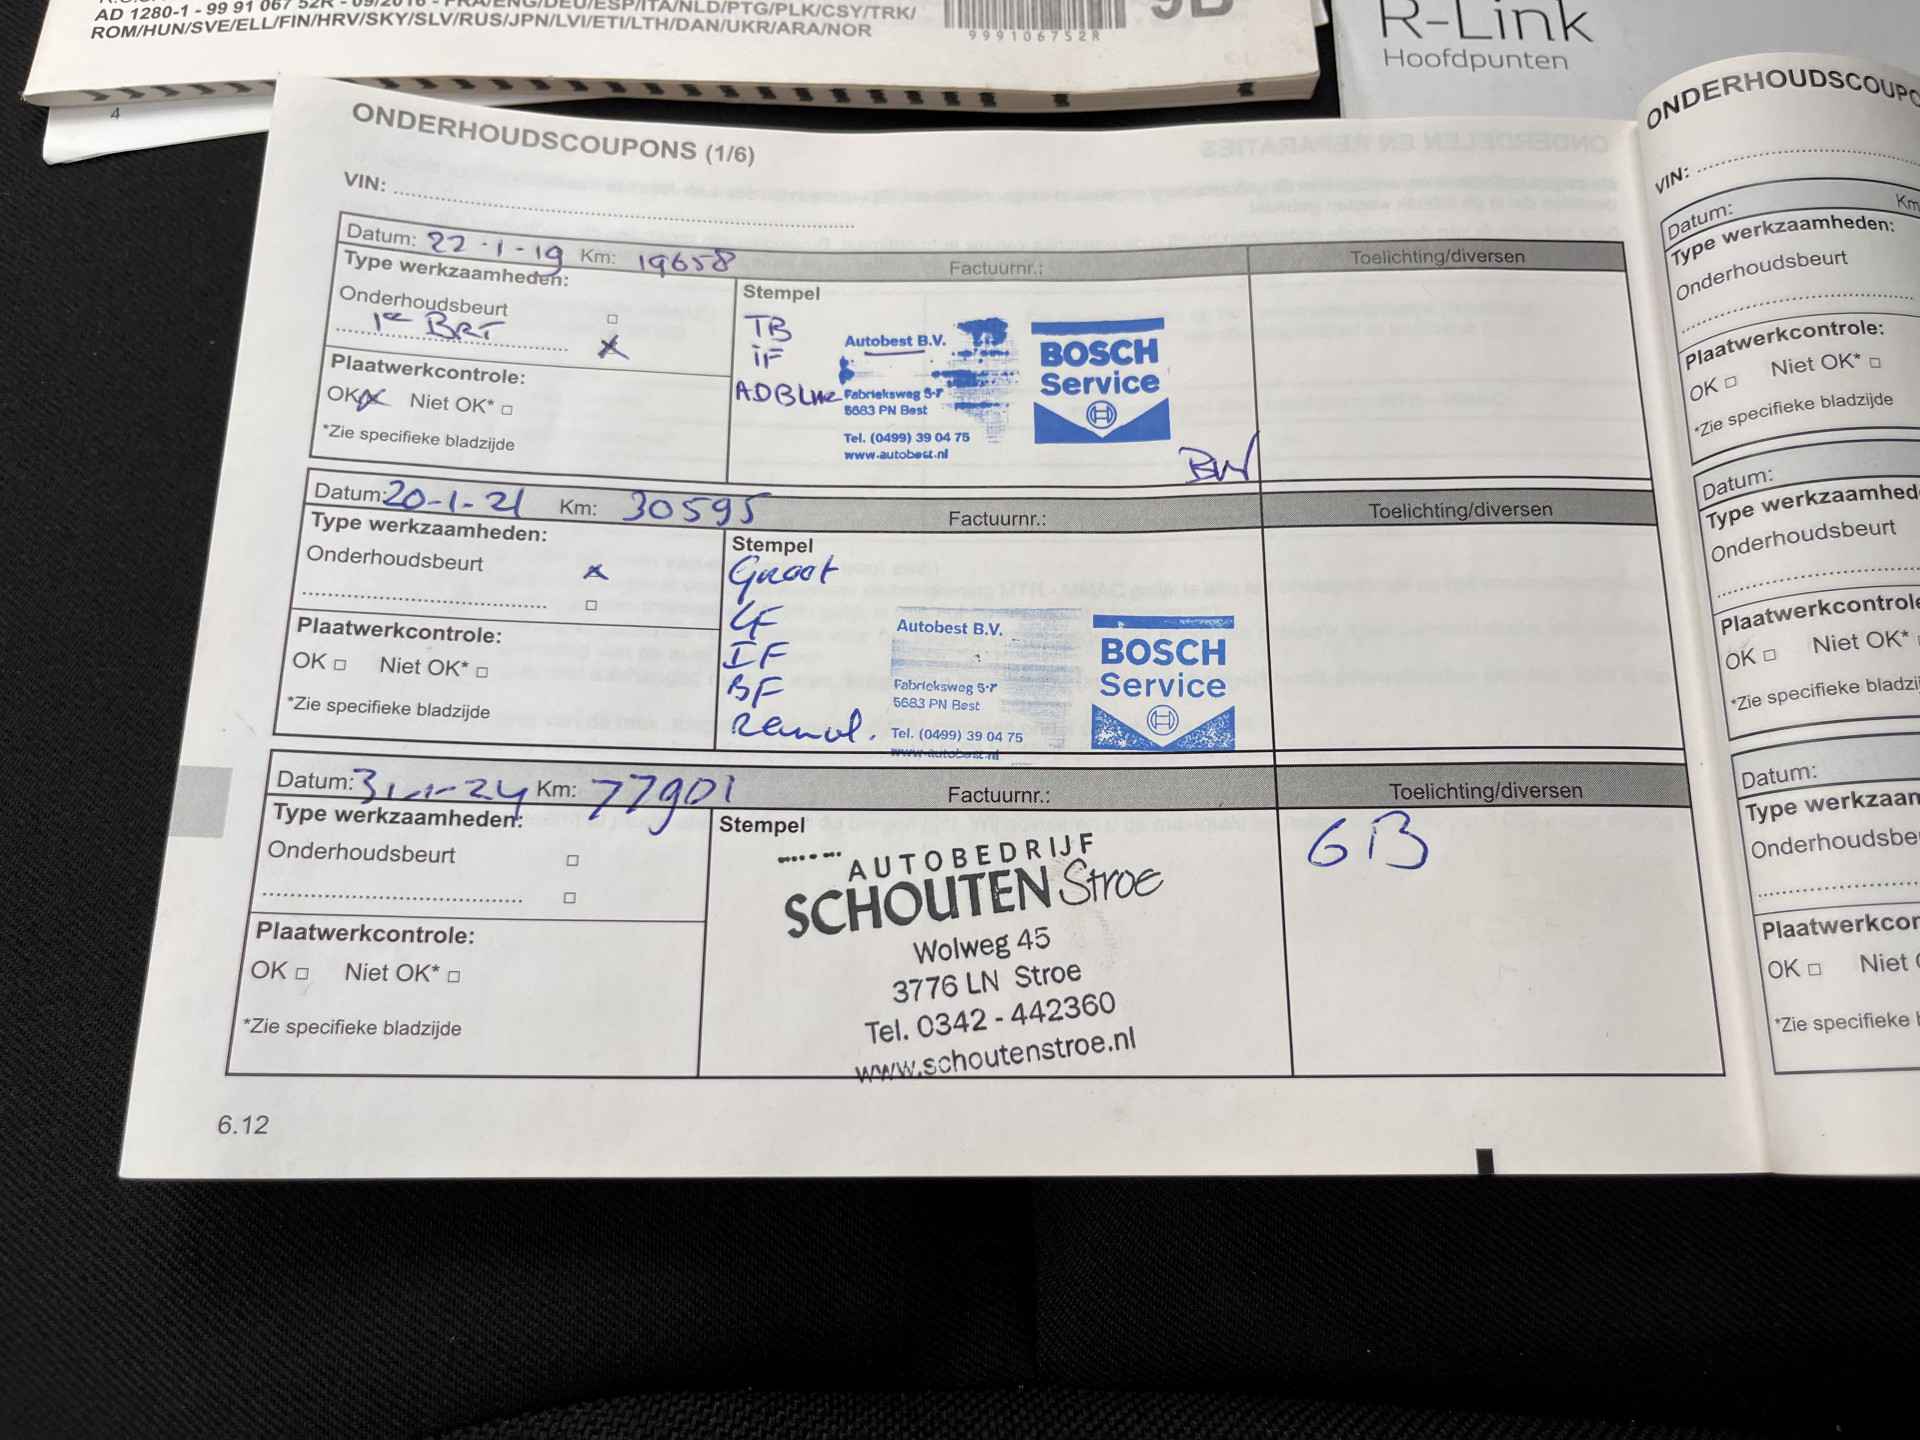 AD 1280-1 - 99 91 067 52R - 09/2016 - FRA/ENG/DEU/ESP/ITA/NLD/PTG/PLK/CSY/TRK/
ROM/HUN/SVE/ELL/FIN/HRV/SKY/SLV/RUS/JPN/LVI/ETI/LTH/DAN/UKR/ARA/NOR
999106752R
9B
R-Link
Hoofdpunten
4
ONDERHOUDSCOUPONS (1/6)
VIN:
Datum: 22-1-19 Km: 19658 Factuurnr.: Toelichting/diversen
Type werkzaamheden:
Onderhoudsbeurt
1e BRT
Plaatwerkcontrole:
OK Niet OK*
*Zie specifieke bladzijde
Stempel
TB
iF
ADBLUE
Autobest B.V.
Fabrieksweg 5-7
5683 PN Best
Tel. (0499) 39 04 75
www.autobest.nl
BOSCH
Service
Datum: 20-1-21 Km: 30595 Factuurnr.: Toelichting/diversen
Type werkzaamheden:
Onderhoudsbeurt
Plaatwerkcontrole:
OK Niet OK*
*Zie specifieke bladzijde
Stempel
Groot
LF
IF
BF
Remvl.
Autobest B.V.
Fabrieksweg 5-7
5683 PN Best
Tel. (0499) 39 04 75
www.autobest.nl
BOSCH
Service
Datum: 31-1-24 Km: 77901 Factuurnr.: Toelichting/diversen
Type werkzaamheden:
Onderhoudsbeurt
Plaatwerkcontrole:
OK Niet OK*
*Zie specifieke bladzijde
Stempel
AUTOBEDRIJF
SCHOUTEN Stroe
Wolweg 45
3776 LN Stroe
Tel. 0342 - 442360
www.schoutenstroe.nl
6.12
VIN:
Datum: Km
Type werkzaamheden:
Onderhoudsbeurt
Plaatwerkcontrole:
OK Niet OK*
*Zie specifieke bladzijde
Datum:
Onderhoudsbeurt
OK Niet OK*
Datum:
OK Niet
*Zie specifieke